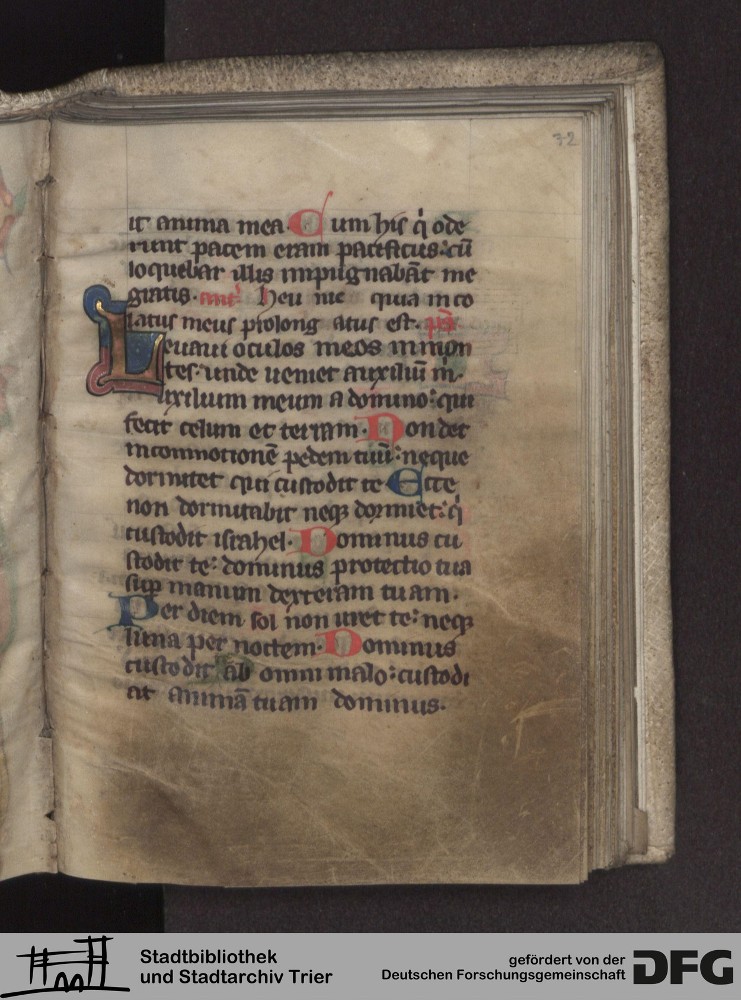 32
it anima mea. Cum his q̇ ode
runt pacem eram pacificus: cū
loquebar illis impugnabāt me
gratis. ant̄ heu me quia inco
latus meus prolong atus est. ps̄
Leuaui oculos meos in mon
tes: unde ueniet auxiliū m̄.
uxilium meum a domino: qui
fecit celum et terram. Non det
in commotionē pedem tuū: neque
dormitet qui custodit te Ecce
non dormitabit neqꝫ dormiet: q̇
custodit israhel. Dominus cu
stodit te: dominus protectio tua
suꝑ manum dexteram tuam.
Per diem sol non uret te: neqꝫ
luna per noctem. Dominus
custodit ab omni malo: custodi
at animā tuam dominus.
Stadtbibliothek
und Stadtarchiv Trier
gefördert von der
Deutschen Forschungsgemeinschaft
DFG